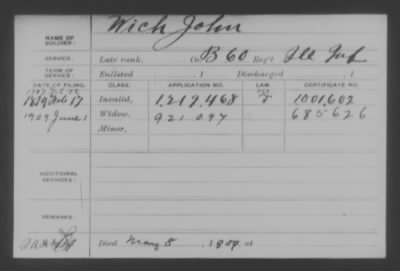 Wich John
NAME OF SOLDIER:
SERVICE: Late rank, Co. B 60 Reg't Ill Inf
TERM OF SERVICE: Enlisted , 1 Discharged , 1
DATE OF FILING. CLASS. APPLICATION NO. LAW. CERTIFICATE NO.
17 Invalid, 1.212.468 1001.602
1909 June 1 Widow, 921.097 685626
Minor,
ADDITIONAL SERVICES:
REMARKS:
Died May 8, 1909, at